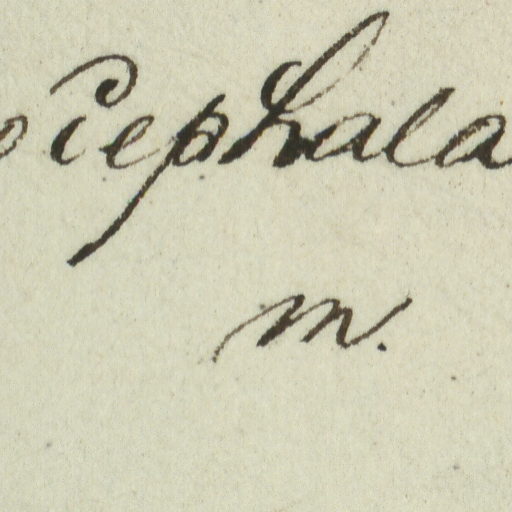 ocephala
m.